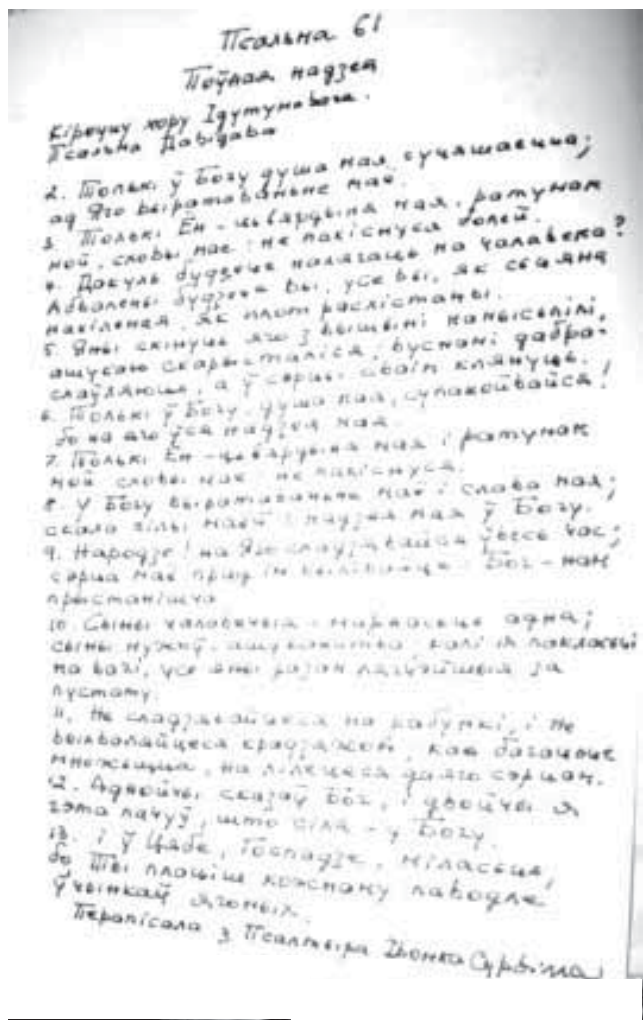 Псальма 61
Поўная надзея
Кіроўцу хору Ідутунавага.
Псальма Давідава
2. Толькі ў Богу душа мая суцяшаецца;
ад Яго выратаваньне маё.
3. Толькі Ён - цьвярдыня мая, ратунак
мой, словы мае: не пахіснуся болей.
4. Дакуль будзеце налягаць на чалавека?
Абвалены будзеце вы, усе вы, як сьцяна
нахіленая, як плот расхістаны.
5. Яны скінуць яго з вышыні намысьлілі,
ашукаю скарысталіся, вуснамі дабра-
слаўляюць, а ў сэрцы сваім клянуць.
6. Толькі ў Богу, душа мая, супакойвайся!
бо на яго ўся надзея мая.
7. Толькі Ён - цьвярдыня мая і ратунак
мой словы мае не пахіснуся.
8. У Богу выратаваньне маё і слава мая;
скала сілы маёй і надзея мая ў Богу.
9. Народзе! на Яго спадзявайся ўвесь час;
сэрца маё прад ім вылівайце: Бог - нам
прыстанішча
10. Сыны чалавечыя - марнасьць адна;
сыны мужоў - ашуканства, калі іх пакласьці
на вагі, усе яны разам лягчэйшыя за
пустату.
11. Не спадзявайцеся на рабункі, і не
выхваляйцеся крадзяжом, как багацьце
множыцца, на ляцеся да яго сэрцам.
12. Аднойчы сказаў Бог, і двойчы я
гэта пачуў, што сіла - у Богу.
13. і ў Цябе, Госпадзе, міласьць,
бо Ты плаціш кожнаму паводле
ўчынкаў ягоных.
Перапісала з Псалтыра Івонка Сурвілла